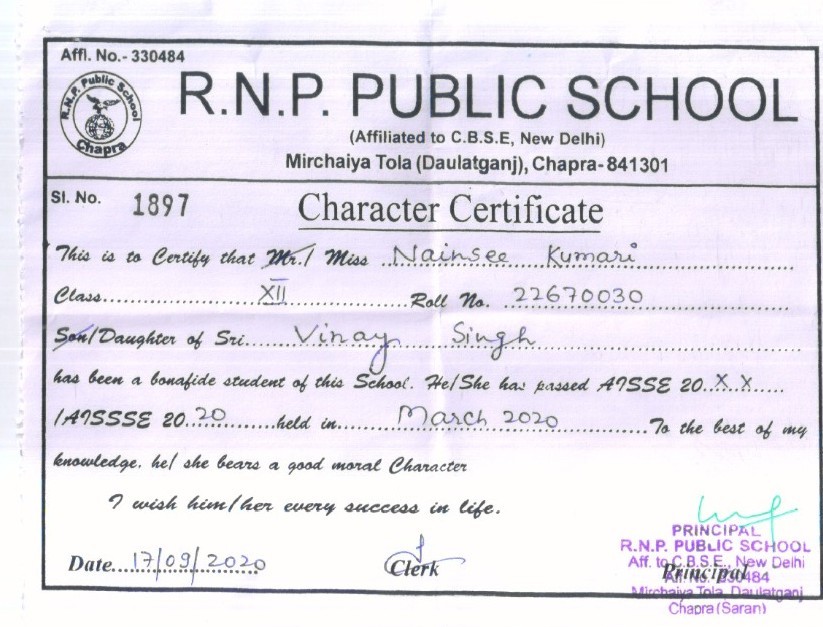 Affl. No.- 330484
R.N.P. Public School
Chapra
R.N.P. PUBLIC SCHOOL
(Affiliated to C.B.S.E, New Delhi)
Mirchaiya Tola (Daulatganj), Chapra- 841301
Sl. No. 1897
Character Certificate
This is to Certify that Mr./ Miss Nainsee Kumari
Class XII Roll No. 22670030
Son/Daughter of Sri Vinay Singh
has been a bonafide student of this School. He/She has passed AISSE 20 X X
/AISSSE 20 20 held in March 2020 To the best of my
knowledge. he/ she bears a good moral Character
I wish him/her every success in life.
Date 17/09/2020 Clerk Principal
PRINCIPAL
R.N.P. PUBLIC SCHOOL
Aff. to C.B.S.E., New Delhi
Aff. No. 330484
Mirchaiya Tola, Daulatganj
Chapra (Saran)